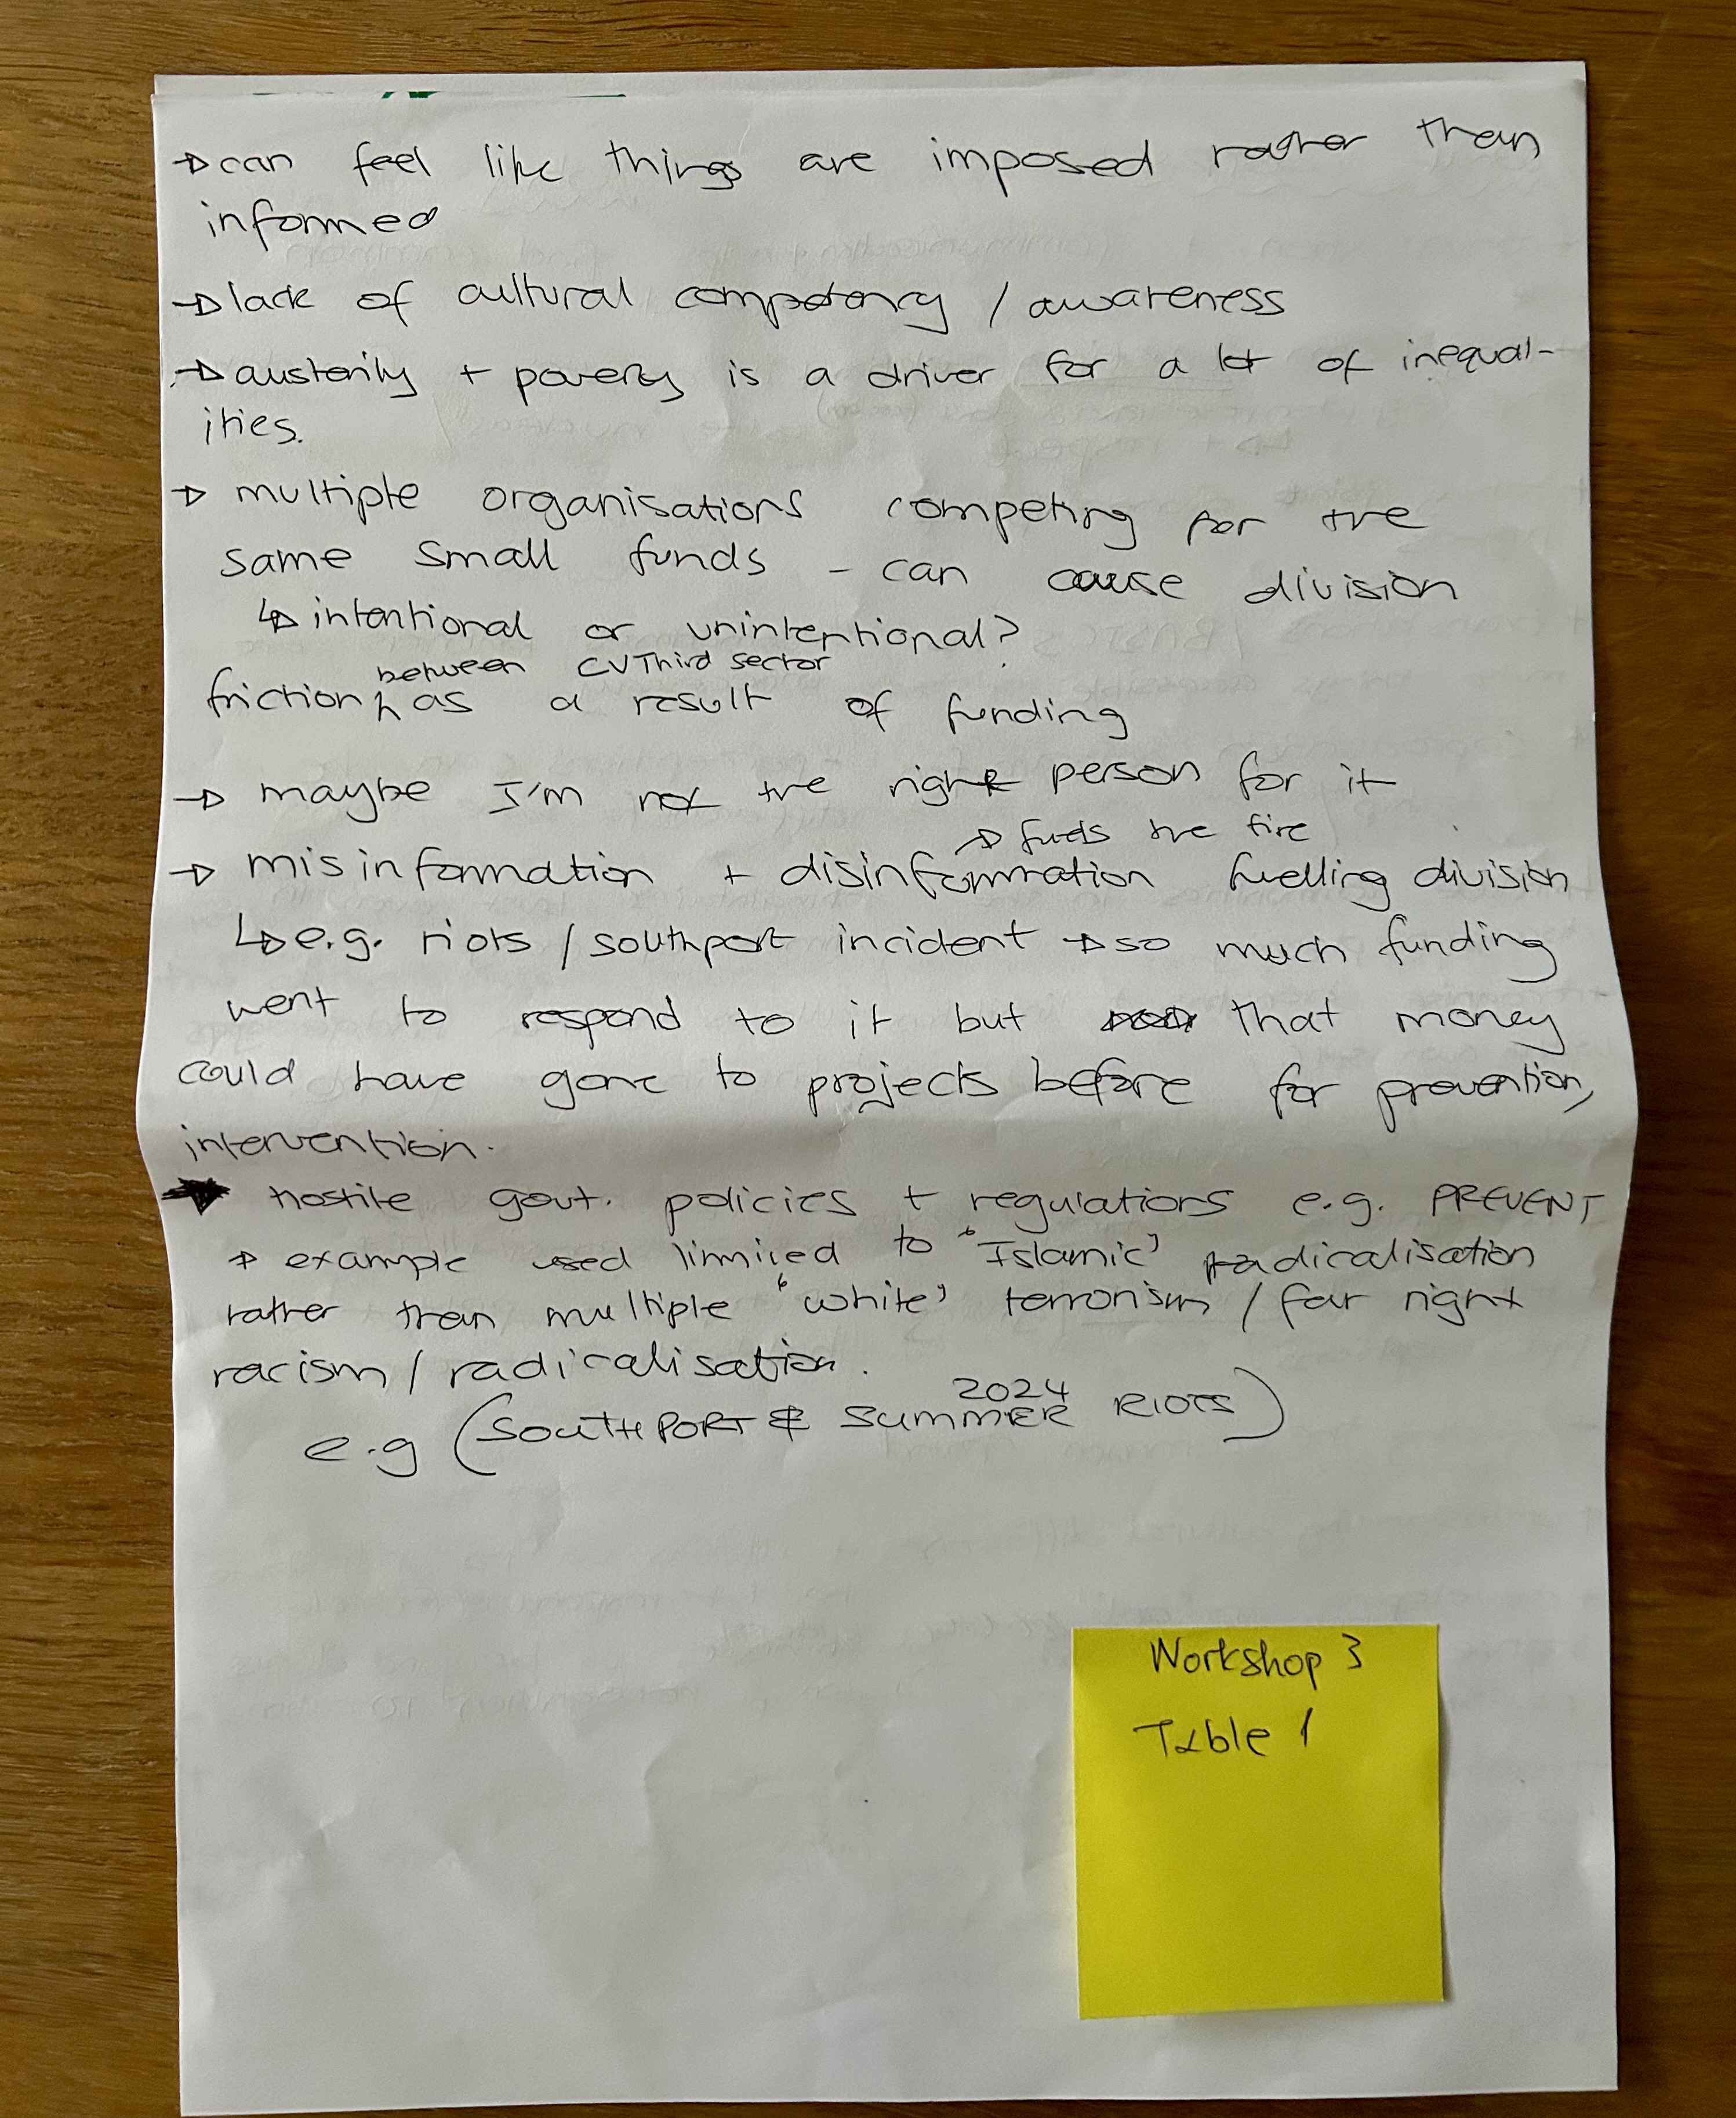 → can feel like things are imposed rather than
informed
→ lack of cultural competency / awareness
→ austerity + poverty is a driver for a lot of inequal-
ities.
→ multiple organisations competing for the
same small funds - can cause division
↳ intentional or unintentional?
between CVThird sector
friction as a result of funding
→ maybe I'm not the right person for it
→ fuels the fire
→ misinformation + disinformation fuelling division
↳ e.g. riots / southport incident → so much funding
went to respond to it but that money
could have gone to projects before for prevention,
intervention.
→ hostile govt. policies + regulations e.g. PREVENT
→ example used limited to 'Islamic' radicalisation
rather than multiple 'white' terrorism / far right
racism / radicalisation.
2024
e.g (SOUTHPORT & SUMMER RIOTS)
Workshop 3
Table 1